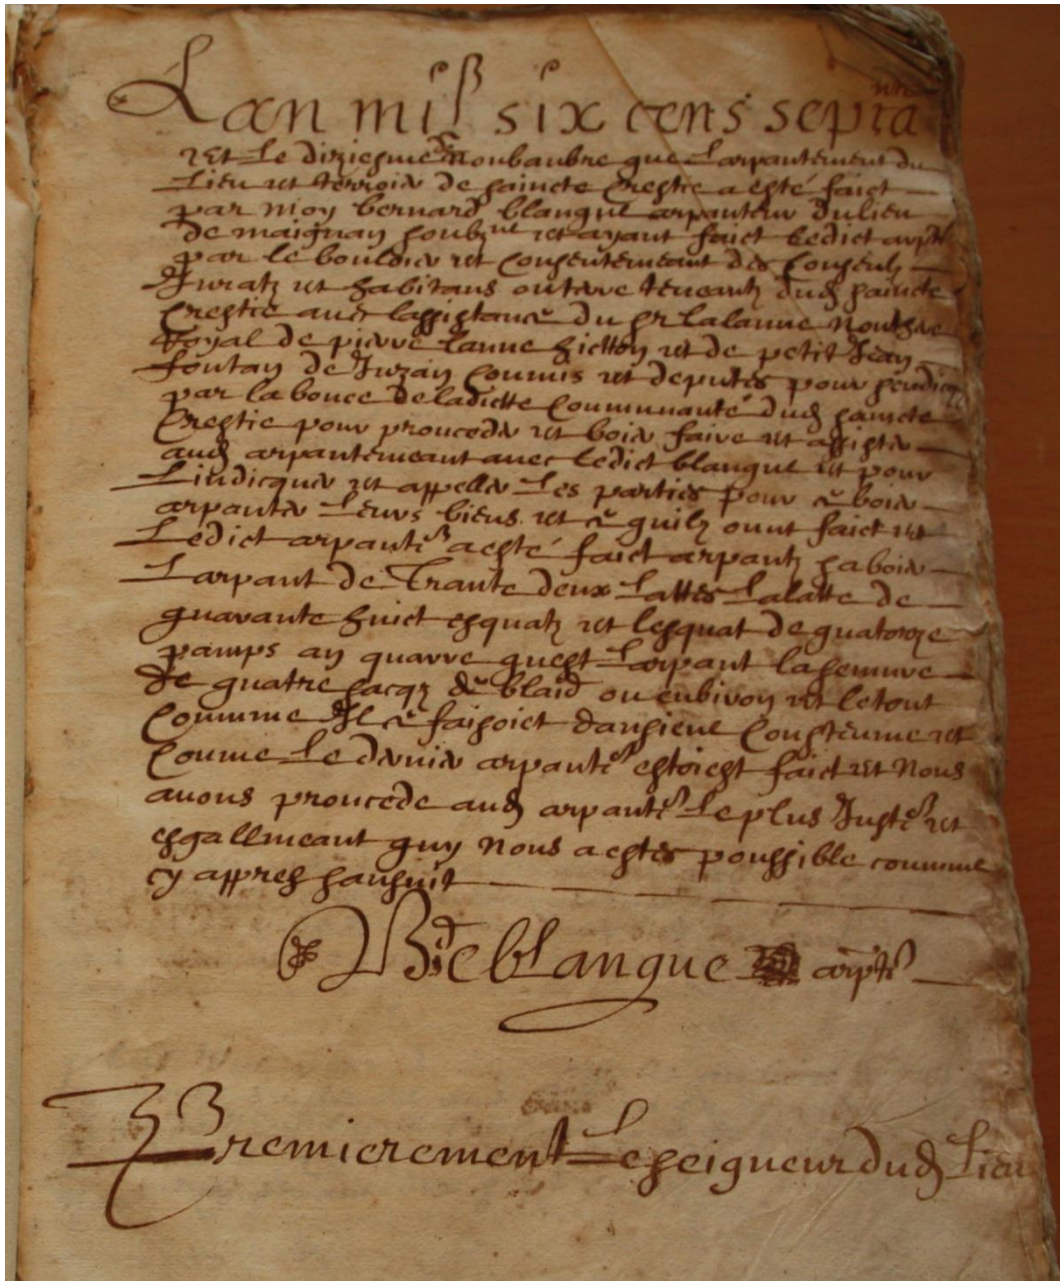 Lan mil six cens septa
et le diziesme noubambre que larpantement du
lieu et terroir de saincte Crestie a esté faict
par moy bernard blanque arpanteur du lieu
de maignan soubzne et ayant faict ledict arpt
par le bouloir et consentemeant des Conseulz
Juratz et habitans ou terre teneantz dud saincte
Crestie auec lassistance du sr lalanne nouthere
Royal de pierre lanne et de petit Jean
fontan de Juzan Commis et deputés pour
par la bouce de ladicte Communauté dud saincte
Crestie pour prouceder et boir faire et assister
aud arpantemeant auec ledict blanque et pour
Lindicquer et appeller les parties pour ce boir
arpanter leurs biens et ce quilz ount faict et
Ledict arpantet a esté faict arpantz saboir
Larpant de Trante deux Lattes La latte de
quarante huict esquatz et lesquat de quatorze
pamps an quarre quest Larpant la semure
de quatre sacqz de blaid ou enbiron et le tout
Comme Il ce faisoict dansiene Consteume et
Coume Le dernier arpantet estoiest faict et Nous
auons proucede aud arpantet Le plus Justet et
esgallmeant quy Nous a estés poussible comme
cy appres sansuit
B de blanque arpter
Premierement Le seigneur dud Lieu